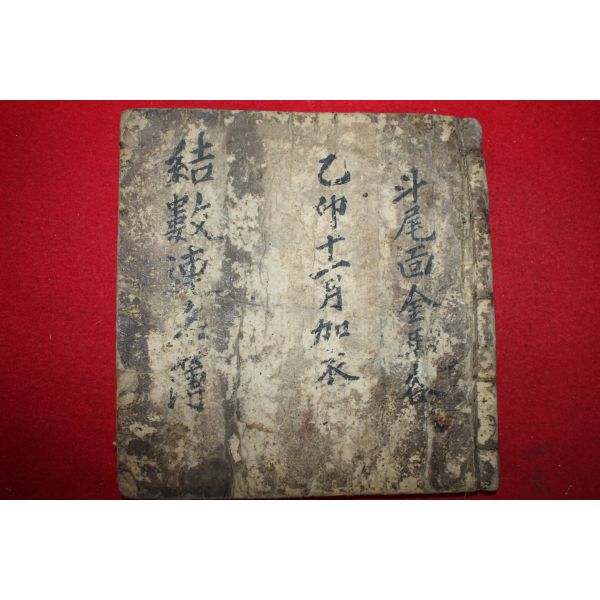 斗尾面金
乙卯十一月加衣
結數連名簿